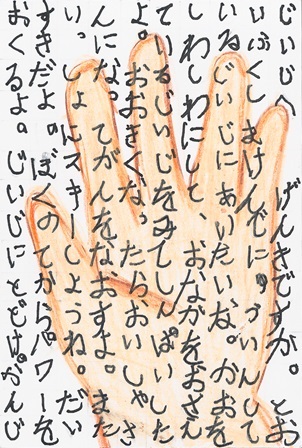 じいじへ げんきですか。とお
いふくしまけんでにゅういんして
いるじいじにあいたいな。かおを
しわしわにして、おなかをおさえ
ているじいじをみてしんぱいした
よ。おおきくなったらおいしゃさ
んになってがんをなおすよ。また
いっしょにスキーしようね。だい
すきだよ。ぼくのてからパワーを
おくるよ。じいじにとどけ。かんじ